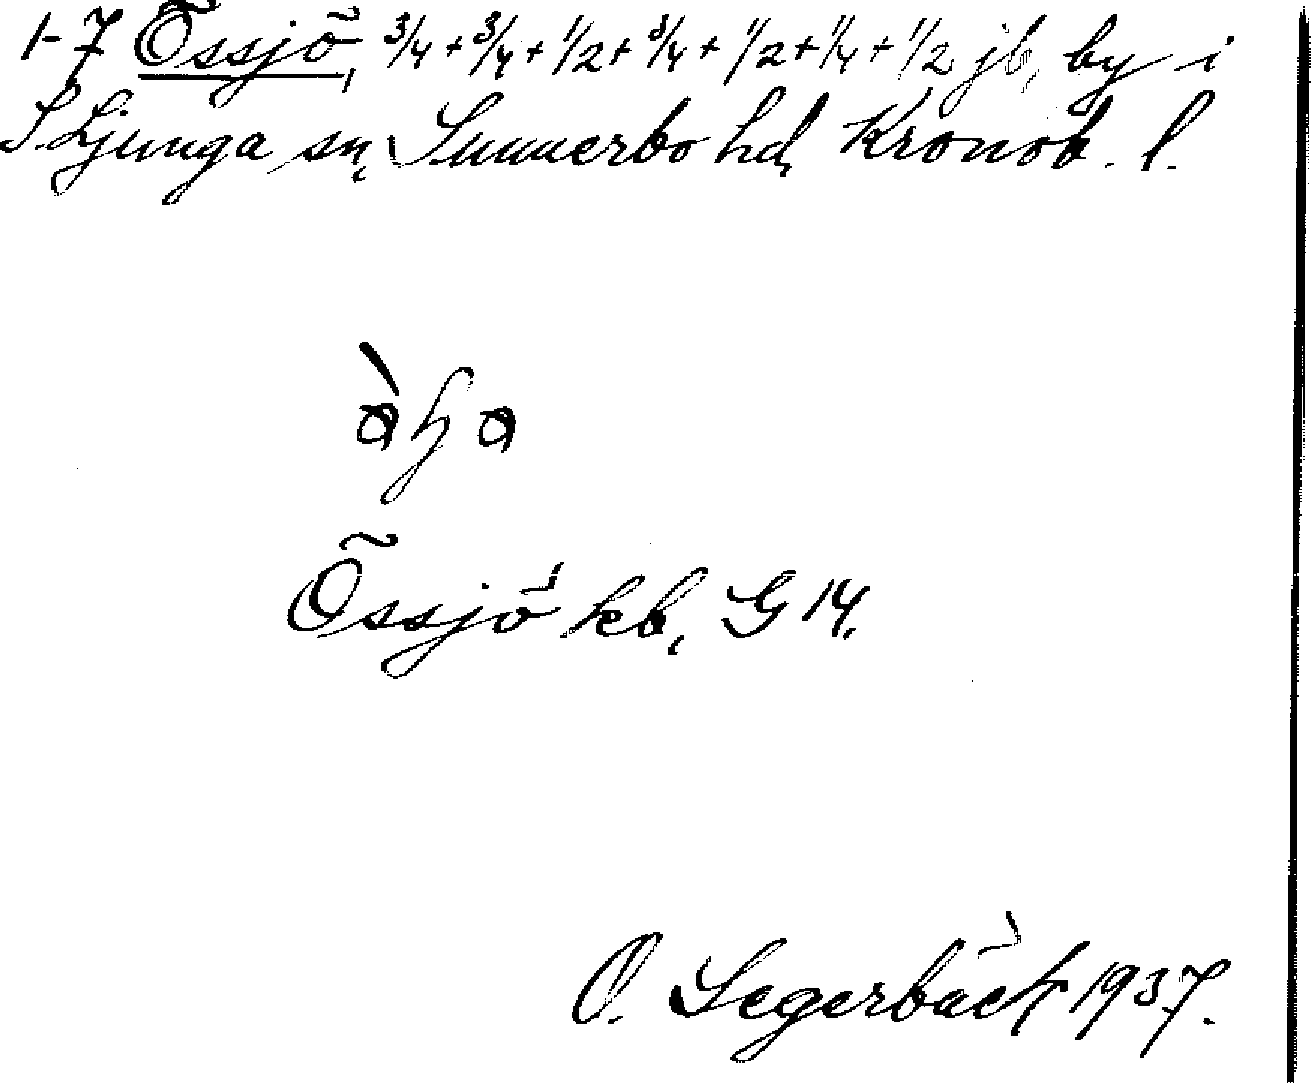 1-7 Össjö, 3/4 + 3/4 + 1/2 + 3/4 + 1/2 + 1/4 + 1/2 jb, by i
S. Ljunga sn, Sunnerbo hd, Kronob. l.
Össjö kb, G 14.
O. Segerbäck 1937.